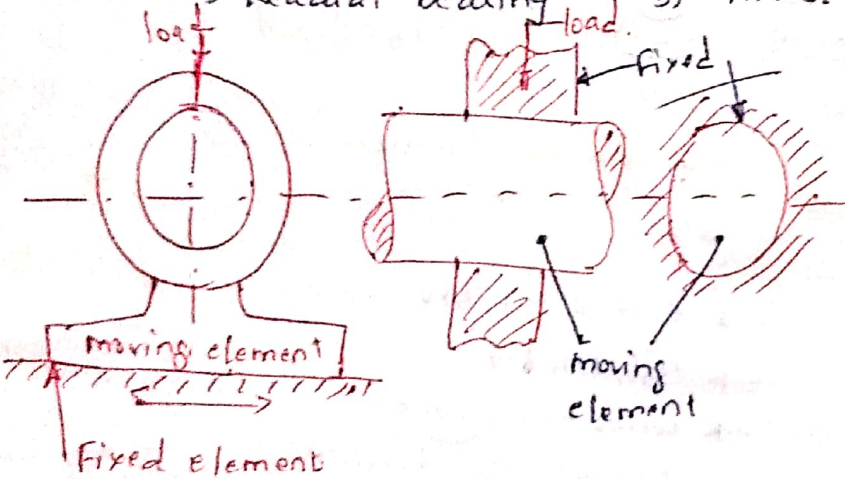 Radial
load
load.
Fixed
moving element
moving
element
Fixed element